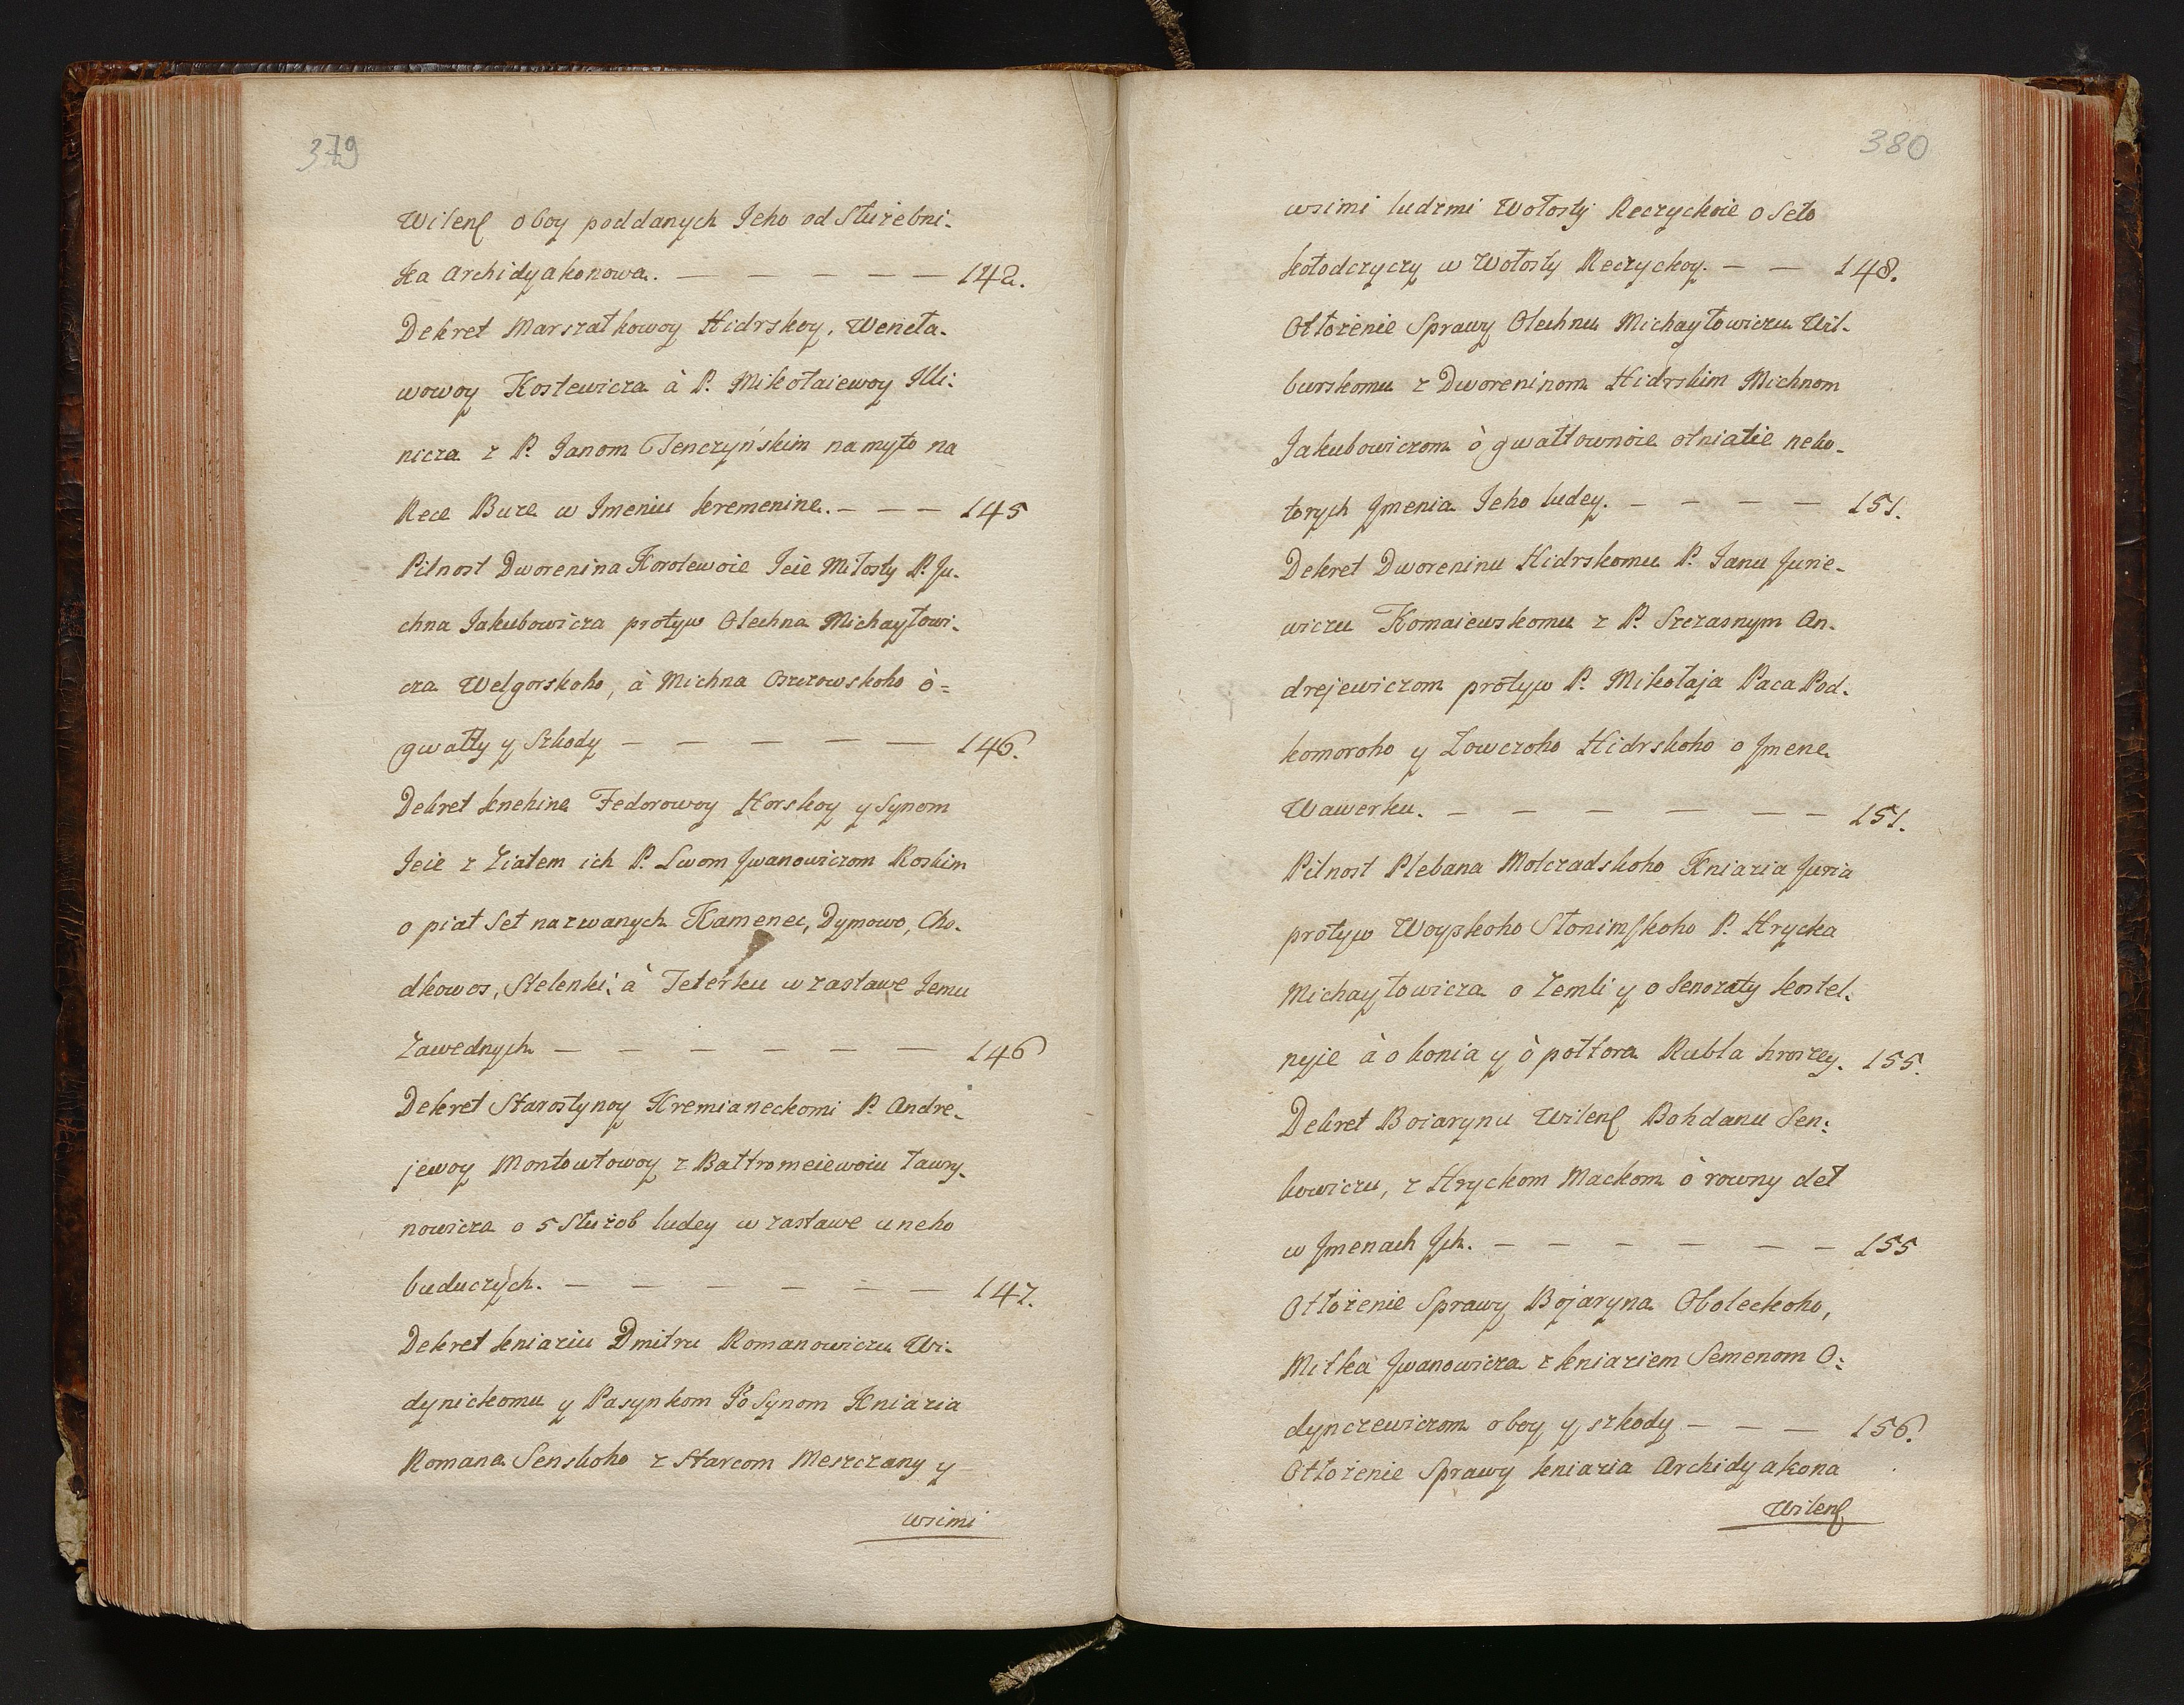 379
Wilenſ o boy poddanych Jeho od Służebni-
ka Archidyakonowa. — — — — — 142.
Dekret Marszałkowoy Hidrskoy, Wencła-
wowoy Kostewicza à P. Mikołaiewoy Illi-
nicza z P. Janom Tenczyńskim na myto na
Rece Buze w Imeniu kremenine. — — — 145
Pilnost Dworenina Korolewoie Jeie Miłosty P. Ju-
chna Jakubowicza protyw Olechna Michayłowi-
cza Welgorskoho, à Michna Oszczowskoho ò=
gwałty y Szkody — — — — — 146.
Dekret knehine Fedorowoy Horskoy y Synom
Jeie z Ziatem ich P. Lwom Jwanowiczom Roskim
o piat Seł nazwanych Kamenec, Dymowo, Cho-
dkowos, Stelenki, à Teterku w zastawe Jemu
Zawednych — — — — — — 146
Dekret Starostynoy Kremianeckomi P. Andre-
jewoy Montowtowoy z Bałtromeiewoiu Ławry-
nowicza o 5 Służob ludey w zastawe u neho
buduczych. — — — — — — 147.
Dekret kniaziu Dmitru Romanowiczu Wi-
dynickomu y Pasynkom Jo Synom Kniazia
Romana Senskoho z Starcom Meszczany y
wsimi
380
wsimi ludzmi Wołosty Reczyckoie o Seło
kołodczyczy w Wołosty Reczyckoy. — — 148.
Otłożenie Sprawy Olechnu Michayłowiczu Wil-
burskomu z Dworeninom Hidrskim Michnom
Jakubowiczom ò gwałtownoie otniatie neko-
torych Jmenia Jeho ludey. — — — — 151.
Dekret Dworeninu Hidrskomu P. Janu Jurie-
wiczu Komaiewskomu z P. Szczasnym An-
drejewiczom protyw P. Mikołaja Paca Pod-
komoroho y Łowczoho Hidrskoho o Jmene
Wawerku. — — — — — — 151.
Pilnost Plebana Mołczadskoho Kniazia Juria
protyw Woyskoho Słonimſkoho P. Hrycka
Michayłowicza o Zemli y o Senozaty kostel-
nyie à o konia y ò połtora Rubla hroszey. 155.
Dekret Boiarynu Wilenſ Bohdanu Sen-
kowiczu, z Hryckom Mackom ò rowny deł
w Jmenach Jch. — — — — — — 155
Otłożenie Sprawy Bojaryna Oboleckoho,
Mitka Jwanowicza z kniaziem Semenom O-
dynczewiczom o boy y szkody — — — 156.
Otłożenie Sprawy kniazia Archidyakona
Wilenſ